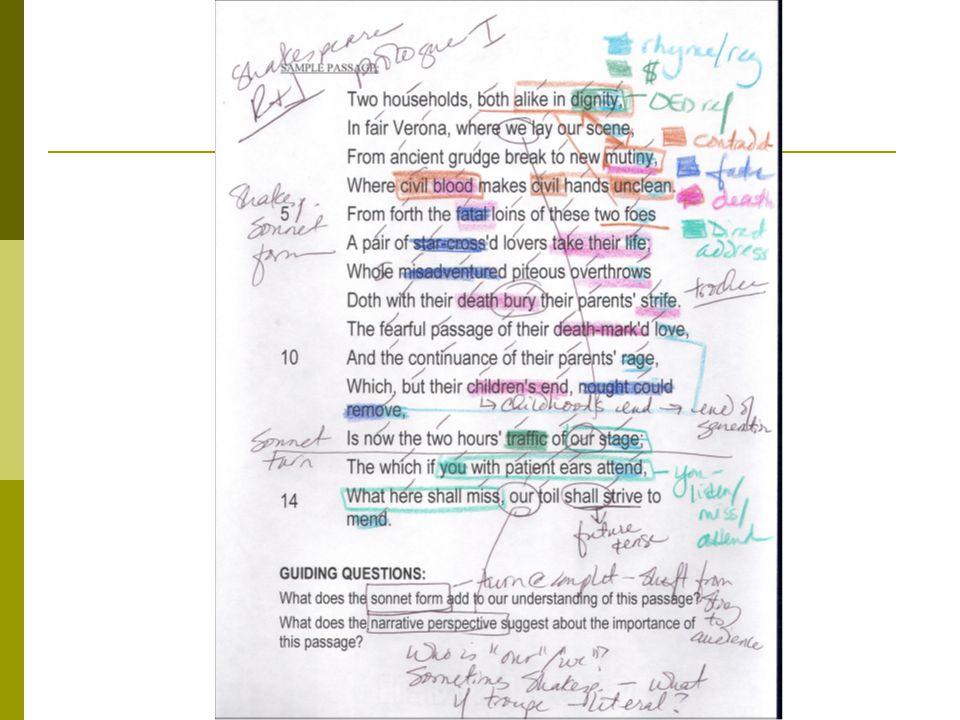 Shakespeare
R+J
prologue I
SAMPLE PASSAGE:
rhyme/reg
$
OED ref
contradict
fate
death
Direct address
Two households, both alike in dignity,
In fair Verona, where we lay our scene,
From ancient grudge break to new mutiny,
Where civil blood makes civil hands unclean.
5 From forth the fatal loins of these two foes
A pair of star-cross'd lovers take their life;
Whole misadventured piteous overthrows
Doth with their death bury their parents' strife.
The fearful passage of their death-mark'd love,
10 And the continuance of their parents' rage,
Which, but their children's end, nought could
remove,
Is now the two hours' traffic of our stage;
The which if you with patient ears attend,
14 What here shall miss, our toil shall strive to
mend.
Shakesp.
sonnet
form
childhood's end → end of
generation
Sonnet
turn
you -
listen/
miss/
attend
future
tense
GUIDING QUESTIONS:
turn @ couplet - shift from
story
to
audience
What does the sonnet form add to our understanding of this passage?
What does the narrative perspective suggest about the importance of
this passage?
Who is "our"/"we"?
Sometimes Shakesp. - what
troupe - literal?